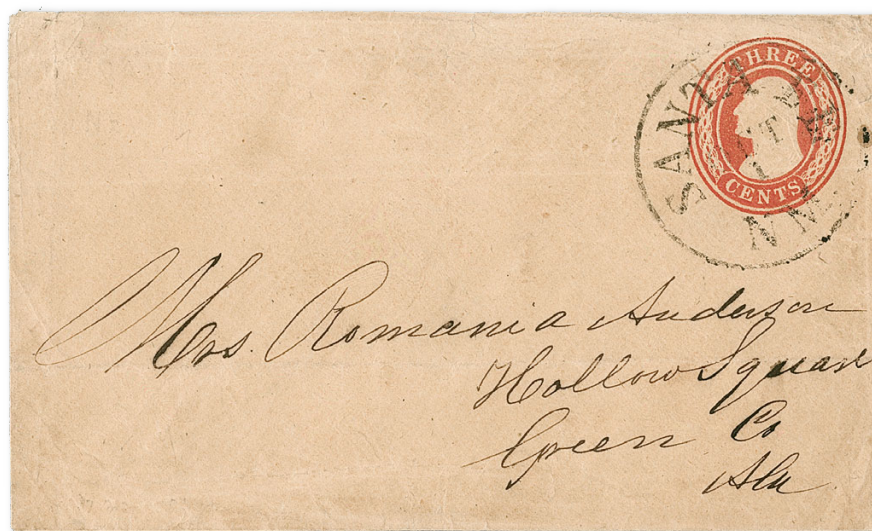 THREE
CENTS
SANTA FE
1
N M
Mrs. Romania Anderson
Hollow Square
Green Co
Ala